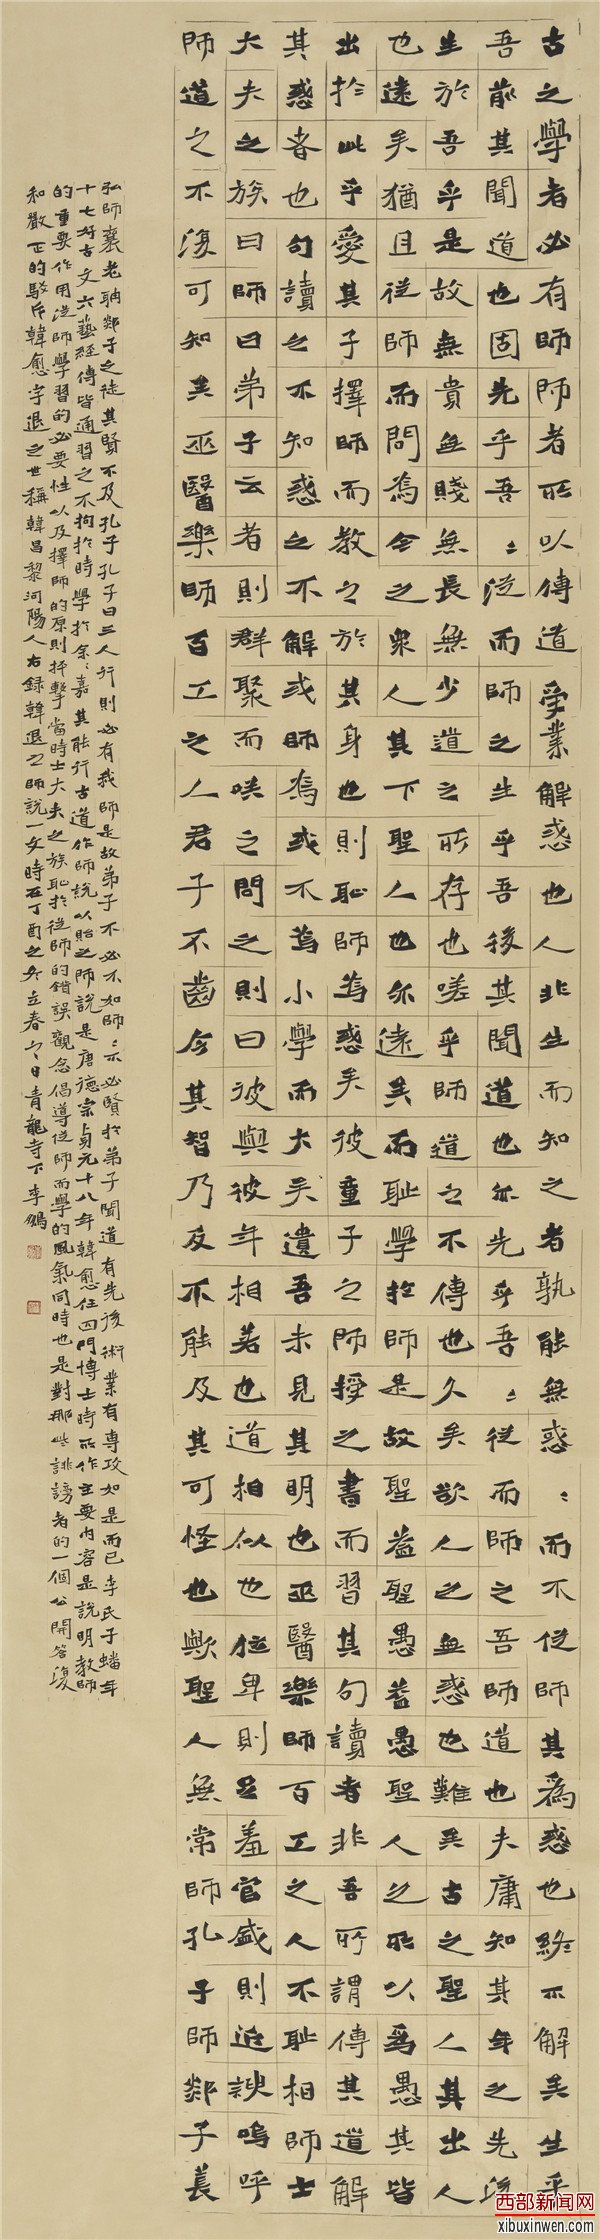 古之學者必有師師者所以傳道受業解惑也人非生而知之者孰能無惑〻而不從師其為惑也終不解矣生乎
吾前其聞道也固先乎吾〻從而師之生乎吾後其聞道也亦先乎吾〻從而師之吾師道也夫庸知其年之先後
生於吾乎是故無貴無賤無長無少道之所存也嗟乎師道之不傳也久矣欲人之無惑也難矣古之聖人其出人
也遠矣猶且從師而問焉今之眾人其下聖人也亦遠矣而恥學於師是故聖益聖愚益愚聖人之所以為愚其皆
出於此乎愛其子擇師而教之於其身也則恥師焉惑矣彼童子之師授之書而習其句讀者非吾所謂傳其道解
其惑者也句讀之不知惑之不解或師焉或不焉小學而大矣遺吾未見其明也巫醫樂師百工之人不恥相師士
大夫之族曰師曰弟子云者則群聚而笑之問之則曰彼與彼年相若也道相似也位卑則足羞官盛則近諛嗚呼
師道之不復可知矣巫醫樂師百工之人君子不齒今其智乃反不能及其可怪也歟聖人無常師孔子師郯子萇
弘師襄老聃郯子之徒其賢不及孔子孔子曰三人行則必有我師是故弟子不必不如師〻不必賢於弟子聞道有先後術業有專攻如是而已李氏子蟠年
十七好古文六藝經傳皆通習之不拘於時學於余〻嘉其能行古道作師說以貽之師說是唐德宗貞元十八年韓愈任四門博士時所作主要內容是說明教師
的重要作用從師學習的必要性以及擇師的原則抨擊當時士大夫之族恥於從師的錯誤觀念倡導從師而學的風氣同時也是對那些誹謗者的一個公開答復
和嚴正的駁斥韓愈字退之世稱韓昌黎河陽人右錄韓退之師說一文時在丁酉之冬立春〻日青龍寺下李鵬
西部新闻网
xibuxinwen.com